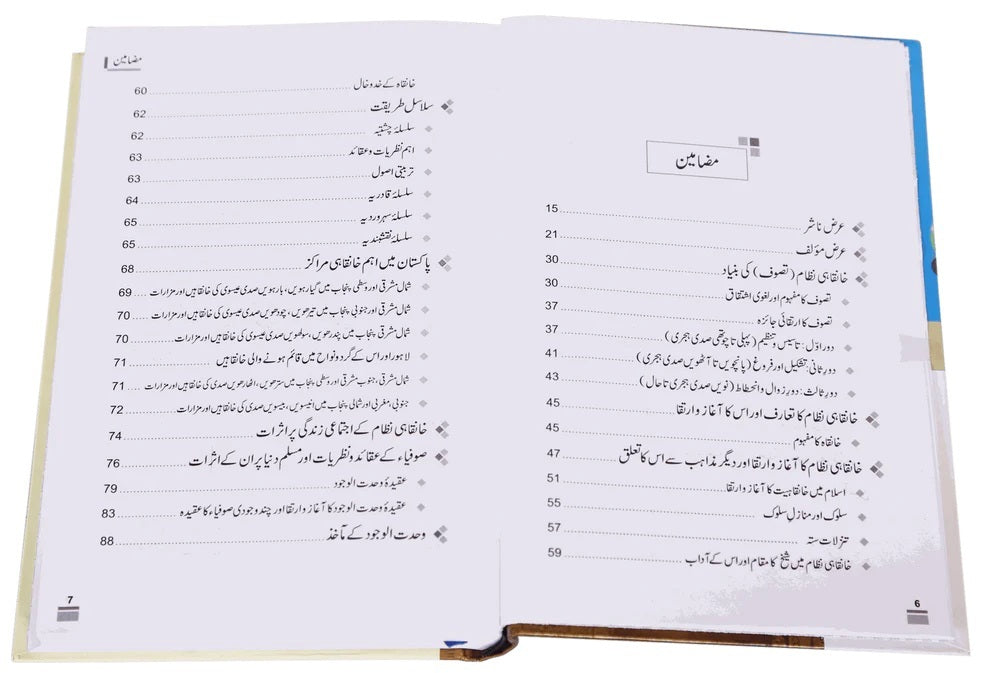 مضامین
عرض ناشر 15
عرض مؤلف 21
خانقاہی نظام (تصوف) کی بنیاد 30
تصوف کا مفہوم اور لغوی اشتقاق 30
تصوف کا ارتقائی جائزہ 37
دور اوّل: تاسیس و تنظیم (پہلی تا چوتھی صدی ہجری) 37
دور ثانی: تشکیل اور فروغ (پانچویں تا آٹھویں صدی ہجری) 41
دور ثالث: دور زوال و انحطاط (نویں صدی ہجری تا حال) 43
خانقاہی نظام کا تعارف اور اس کا آغاز و ارتقا 45
خانقاہ کا مفہوم 45
خانقاہی نظام کا آغاز و ارتقا اور دیگر مذاہب سے اس کا تعلق 47
اسلام میں خانقاہیت کا آغاز و ارتقا 51
سلوک اور منازلِ سلوک 55
تنزلات ستہ 57
خانقاہی نظام میں شیخ کا مقام اور اس کے آداب 59
6
مضامین
خانقاہ کے خدوخال 60
سلاسل طریقت 62
سلسلۂ چشتیہ 62
اہم نظریات و عقائد 63
تربیتی اصول 63
سلسلۂ قادریہ 64
سلسلۂ سہروردیہ 65
سلسلۂ نقشبندیہ 65
پاکستان میں اہم خانقاہی مراکز 68
شمال مشرقی اور وسطی پنجاب میں گیارہویں، بارہویں صدی عیسوی کی خانقاہیں اور مزارات 69
شمال مشرقی اور جنوبی پنجاب میں تیرھویں، چودھویں صدی عیسوی کی خانقاہیں اور مزارات 70
شمال مشرقی پنجاب میں پندرھویں، سولھویں صدی عیسوی کی خانقاہیں اور مزارات 70
لاہور اور اس کے گرد و نواح میں قائم ہونے والی خانقاہیں 71
شمال مشرقی، جنوب مشرقی اور وسطی پنجاب میں سترھویں، اٹھارھویں صدی کی خانقاہیں اور مزارات 71
جنوبی، مغربی اور شمالی پنجاب میں انیسویں، بیسویں صدی کی خانقاہیں اور مزارات 72
خانقاہی نظام کے اجتماعی زندگی پر اثرات 74
صوفیاء کے عقائد و نظریات اور مسلم دنیا پر ان کے اثرات 76
عقیدۂ وحدت الوجود 79
عقیدۂ وحدت الوجود کا آغاز و ارتقا اور چند وجودی صوفیاء کا عقیدہ 83
وحدت الوجود کے مآخذ 88
7